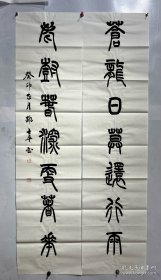 蒼龍日莫還行雨
老樹春深更著華
癸卯